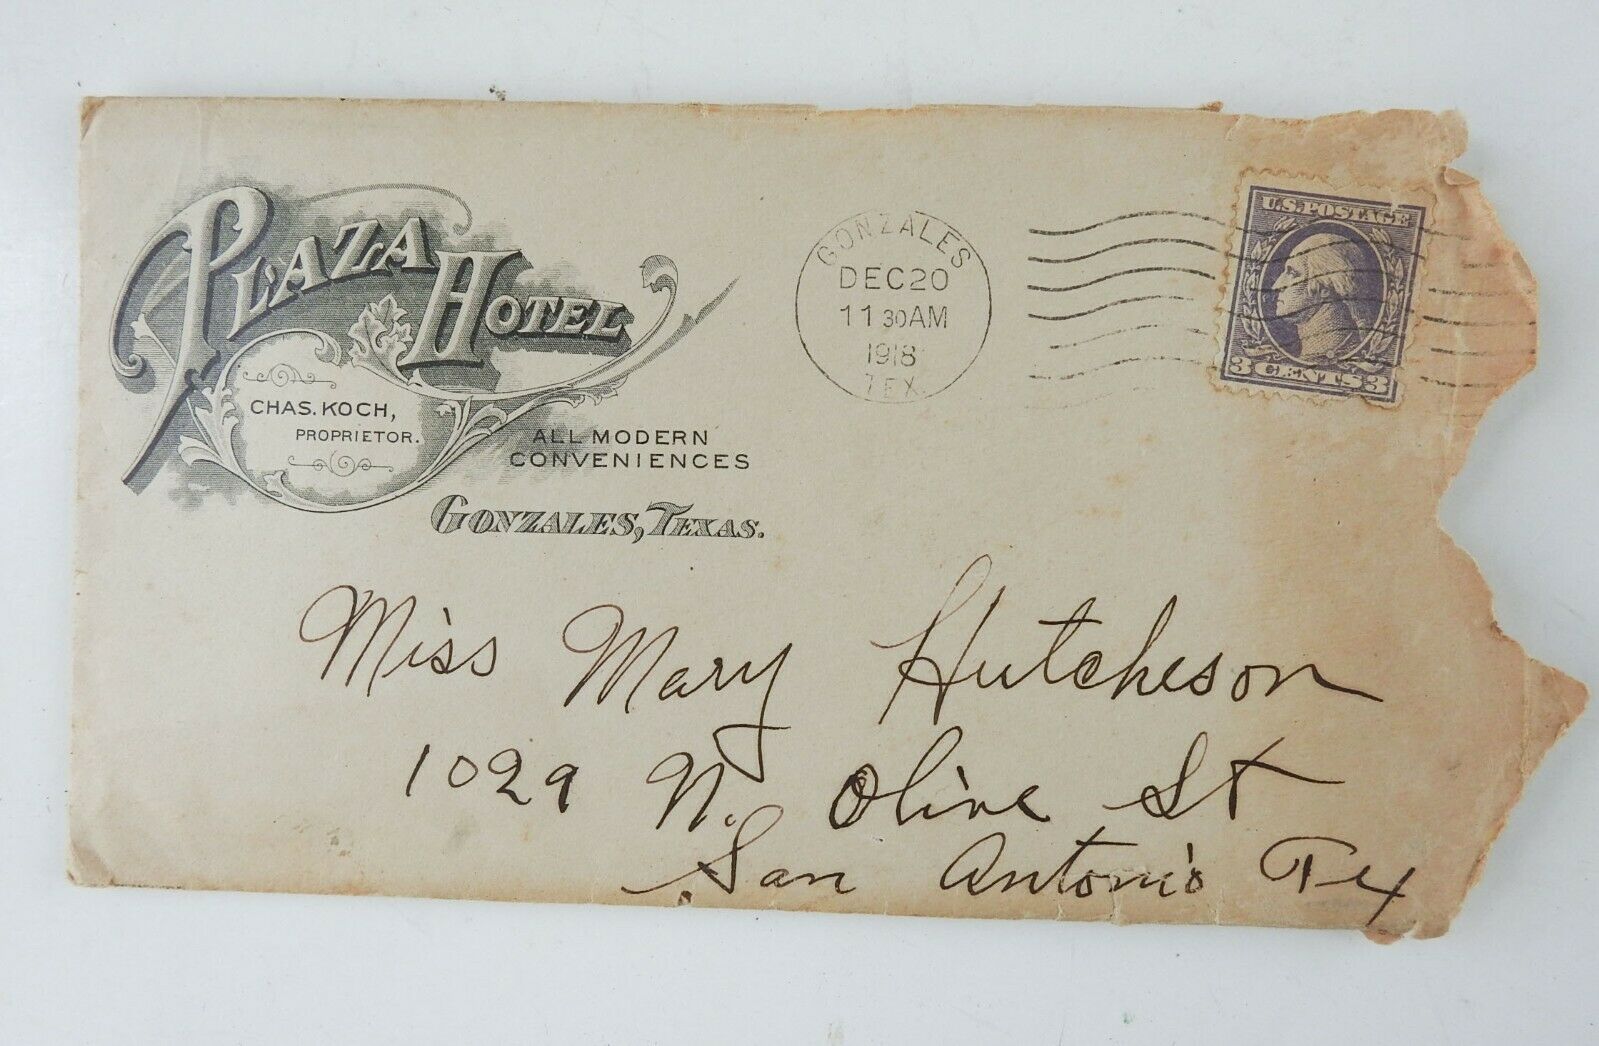 PLAZA HOTEL
CHAS. KOCH,
PROPRIETOR.
ALL MODERN
CONVENIENCES
GONZALES, TEXAS.
GONZALES
DEC 20
11 30 AM
1918
TEX.
U.S. POSTAGE
3 CENTS 3
Miss Mary Hutcheson
1029 N. Olive St
San Antonio Tex